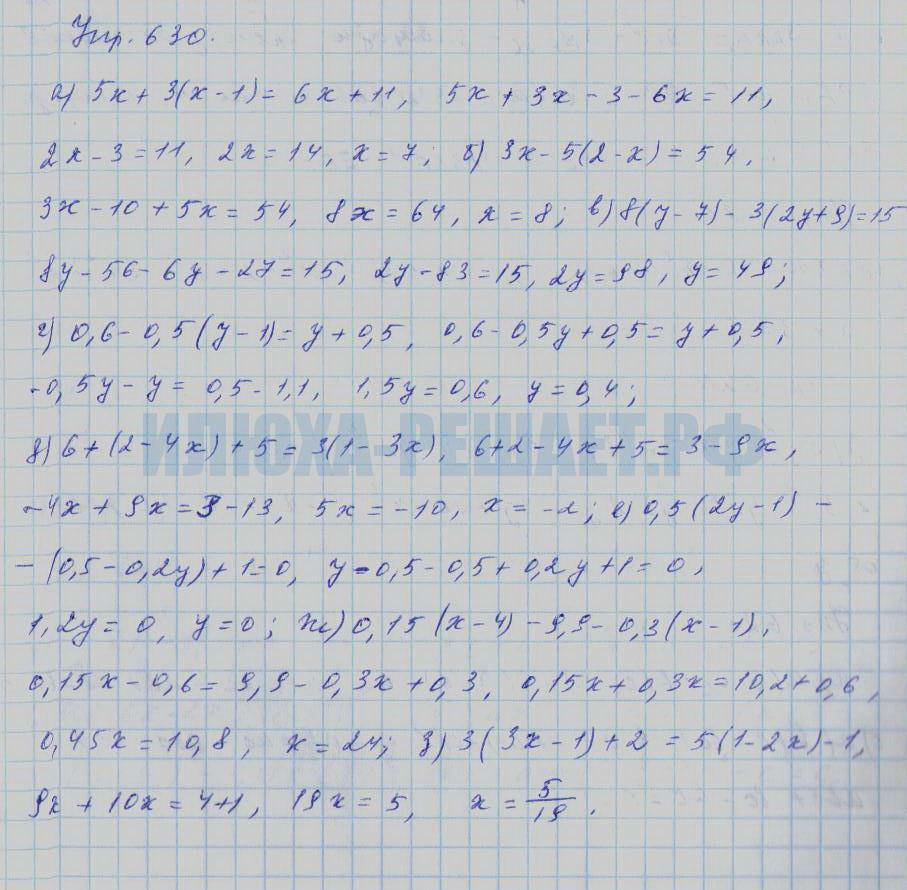 Упр. 630.
а) 5x + 3(x - 1) = 6x + 11, 5x + 3x - 3 - 6x = 11,
2x - 3 = 11, 2x = 14, x = 7; б) 3x - 5(2 - x) = 54,
3x - 10 + 5x = 54, 8x = 64, x = 8; в) 8(y - 7) - 3(2y + 9) = 15
8y - 56 - 6y - 27 = 15, 2y - 83 = 15, 2y = 98, y = 49;
г) 0,6 - 0,5(y - 1) = y + 0,5, 0,6 - 0,5y + 0,5 = y + 0,5;
-0,5y - y = 0,5 - 1,1, 1,5y = 0,6, y = 0,4;
ИЛЮХА-РЕШАЕТ.РФ
д) 6 + (2 - 4x) + 5 = 3(1 - 3x), 6 + 2 - 4x + 5 = 3 - 9x,
-4x + 9x = 3 - 13, 5x = -10, x = -2; е) 0,5(2y - 1) -
- (0,5 - 0,2y) + 1 = 0, y - 0,5 - 0,5 + 0,2y + 1 = 0,
1,2y = 0, y = 0; ж) 0,15(x - 4) - 9,9 - 0,3(x - 1),
0,15x - 0,6 = 9,9 - 0,3x + 0,3, 0,15x + 0,3x = 10,2 + 0,6,
0,45x = 10,8, x = 24; з) 3(3x - 1) + 2 = 5(1 - 2x) - 1,
9x + 10x = 4 + 1, 19x = 5, x = 5/19.